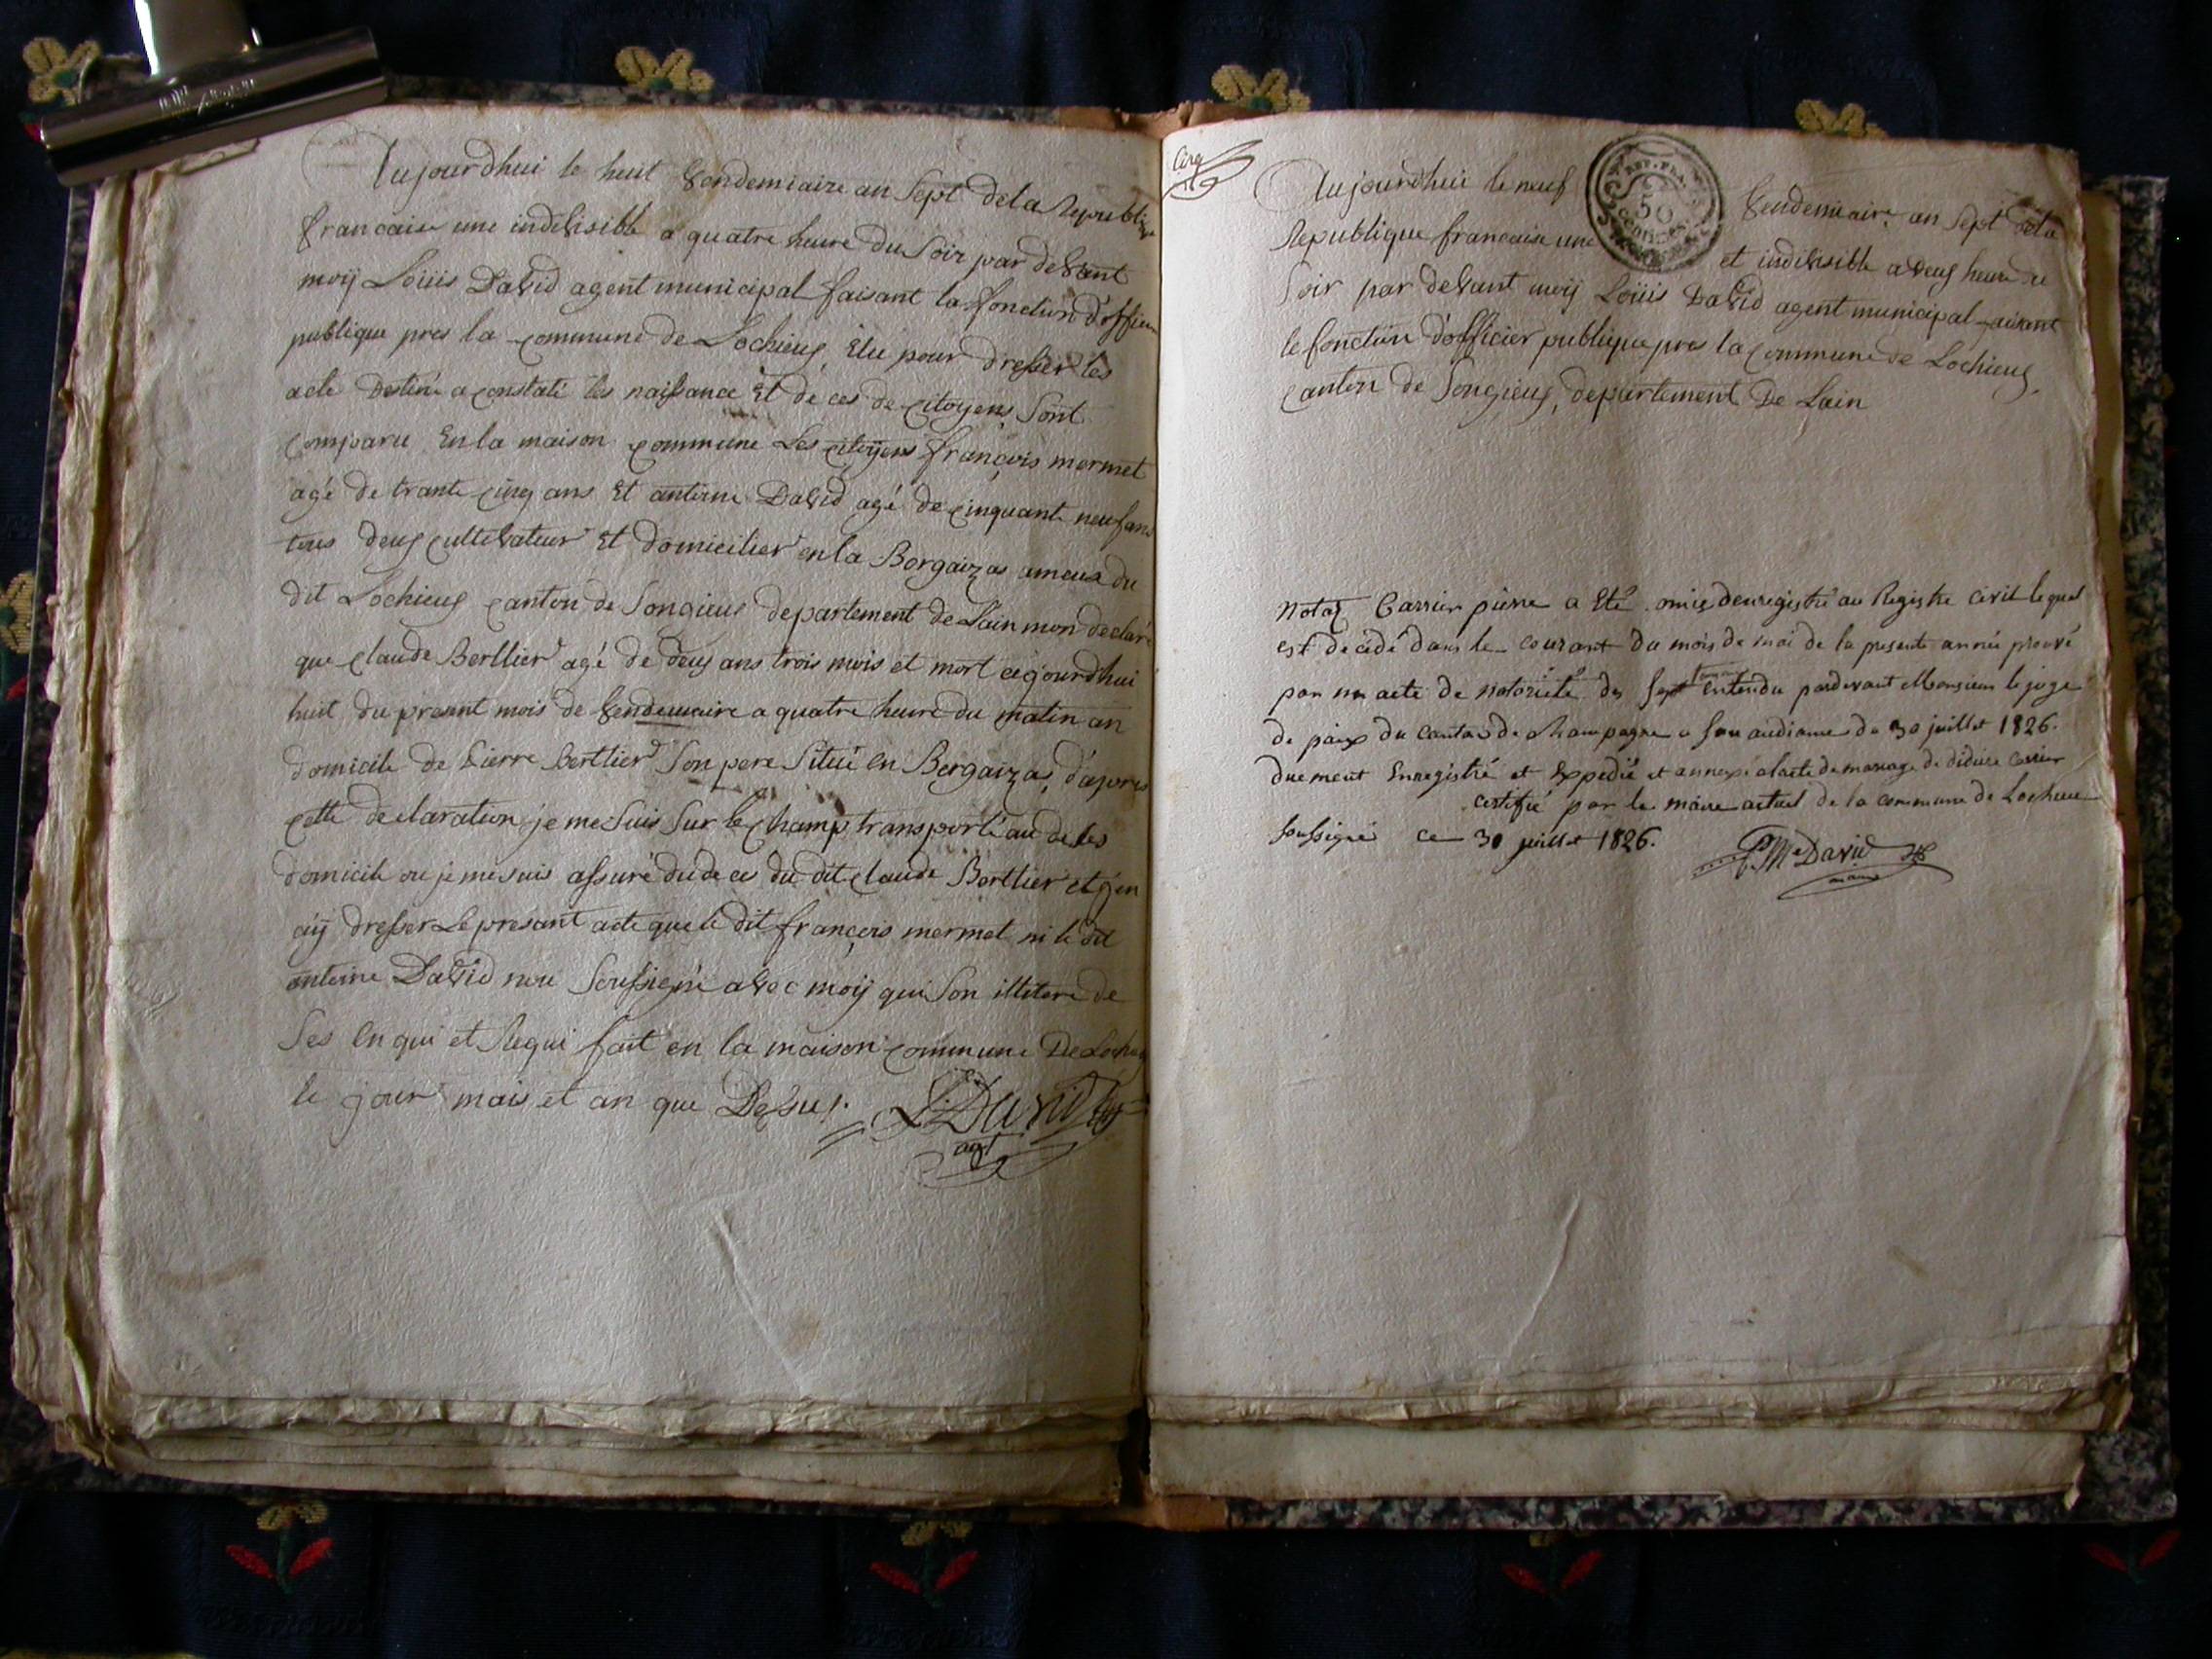 Aujourdhui le huit Vendemiaire an Sept dela Republique
francaise une indivisible a quatre heure du Soir par devant
moÿ Loüis David agent municipal faisant la fonction d'officier
publique pres la commune de Lochieux, Elu pour dresser les
acte Destiné a constaté les naissance Et de ces de citoyens Sont
comparu En la maison commune Les citoyens françois mermet
agé de trante cinq ans Et antoine David agé de cinquante neuf ans
tous deux cultivateur Et domicilier en la Borgaizas du
dit Lochieux canton de Songieux departement de Lain mon declaré
que claude Berllier agé de deux ans trois mois et mort cejourdhui
huit du present mois de Vendemiaire a quatre heure du matin au
domicile de Pierre Bertlier Son pere Situé en Bergaizas, d'apres
cette declaration je me Suis Sur le champ transporté au de les
domicile ou je me suis assuré du de ces du dit claude Bertlier et j'en
aÿ dresser Le presant acte que le dit françois mermet ni le dit
antoine David non Soussigné avec moÿ qui Son illiteré de
Ses En qui et Requi fait en la maison commune De Lochieux
le jour mois et an que Desus.
L: David
agt
Cinq
REP. FRA.
50
CENTIMES
Aujourdhui le neuf Vendemiaire an Sept dela
Republique francaise une et indivisible a deux heure du
Soir par devant moÿ Loüis David agent municipal faisant
le fonction d'officier publique pres la commune de Lochieux,
canton de Songieux, departement De Lain
nota Carrier pierre a Eté omis denregistré au Registre civil lequel
est décédé dans le courant du mois de mai de la presente année prouvé
par un acte de notorieté des sept temoins entendu pardevant Monsieur le juge
de paix du canton de Champagne a son audiance du 30 juillet 1826.
duement Enregistré et Expedié et annexé alacte de mariage de Carrier
certifié par le maire actuel de la commune de Lochieu
soussigné ce 30 juillet 1826.
David
maire